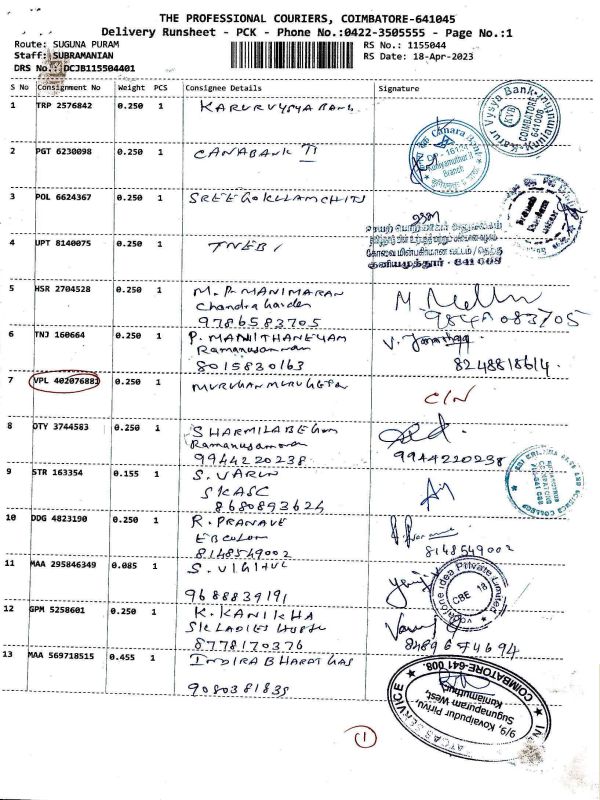 THE PROFESSIONAL COURIERS, COIMBATORE-641045
Delivery Runsheet - PCK - Phone No.:0422-3505555 - Page No.:1
Route: SUGUNA PURAM
RS No.: 1155044
Staff: SUBRAMANIAN
RS Date: 18-Apr-2023
DRS No.: DCJB115504401
S No Consignment No Weight PCS Consignee Details Signature
1 TRP 2576842 0.250 1 KARUR VYSYA BANK
Vysya Bank
KVB
COIMBATORE
641008
2 PGT 6230098 0.250 1 CANABANK II
Canara Bank
DP - 16124
Kuniyamuthur II
Branch
3 POL 6624367 0.250 1 SREE GOKULAM CHITS
4 UPT 8140075 0.250 1 TNEB
குனியமுத்தூர் - 641 008
5 HSR 2704528 0.250 1 M.P. MANIMARAN
Chandra Garden
9786583705
6 TNJ 160664 0.250 1
8015830163
8248818614
7 VPL 402076881 0.250 1 MURUGAN MURUGESAN C/N
8 OTY 3744583 0.250 1 SHARMILA BEGUM
9944220238 9944220238
9 STR 163354 0.155 1 S. VARUN
SKASC
8680893624
SRI KRISHNA ARTS AND SCIENCE COLLEGE
10 DDG 4823190 0.250 1 R. PRANAVE
EB COLONY
8148549002 8148549002
11 MAA 295846349 0.085 1
9688839191
Vodafone Idea Private Limited
CBE 18
12 GPM 5258601 0.250 1 K. KANIKHA
SK LADIES HOSTEL
8778170376
13 MAA 569718515 0.455 1 INDIRA BHARAT GAS
9080381839
9/9, Kovaipudur Pirivu,
Sugunapuram West,
Kuniamuthur,
COIMBATORE-641 008.
1